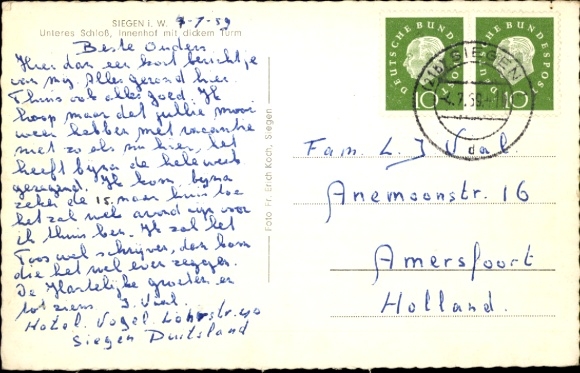 SIEGEN i. W. 7-7-59
Unteres Schloß, Innenhof mit dickem Turm
Beste Ouders
Hier dan een kort berichtje
van mij. Alles gezond hier.
Thuis ook alles goed. Ik
hoop maar dat jullie mooi
weer hebben met vacantie
niet zo als nu hier, het
heeft bijna de hele week
geregend. Ik kom bijna
zeker de 15. naar huis toe
het zal wel avond zijn voor
ik thuis ben. Ik zal het
Toos wel schrijven, dan kan
die het wel even zeggen.
De Hartelijke groeten en
tot ziens J. Vael.
Hotel. Vogel. Löhrstr. 40
Siegen Duitsland
Foto Fr. Erich Koch, Siegen
DEUTSCHE BUNDESPOST
10
DEUTSCHE BUNDESPOST
10
(21b) SIEGEN
7.59
d
Fam. L. J Val
Anemoonstr. 16
Amersfoort
Holland.